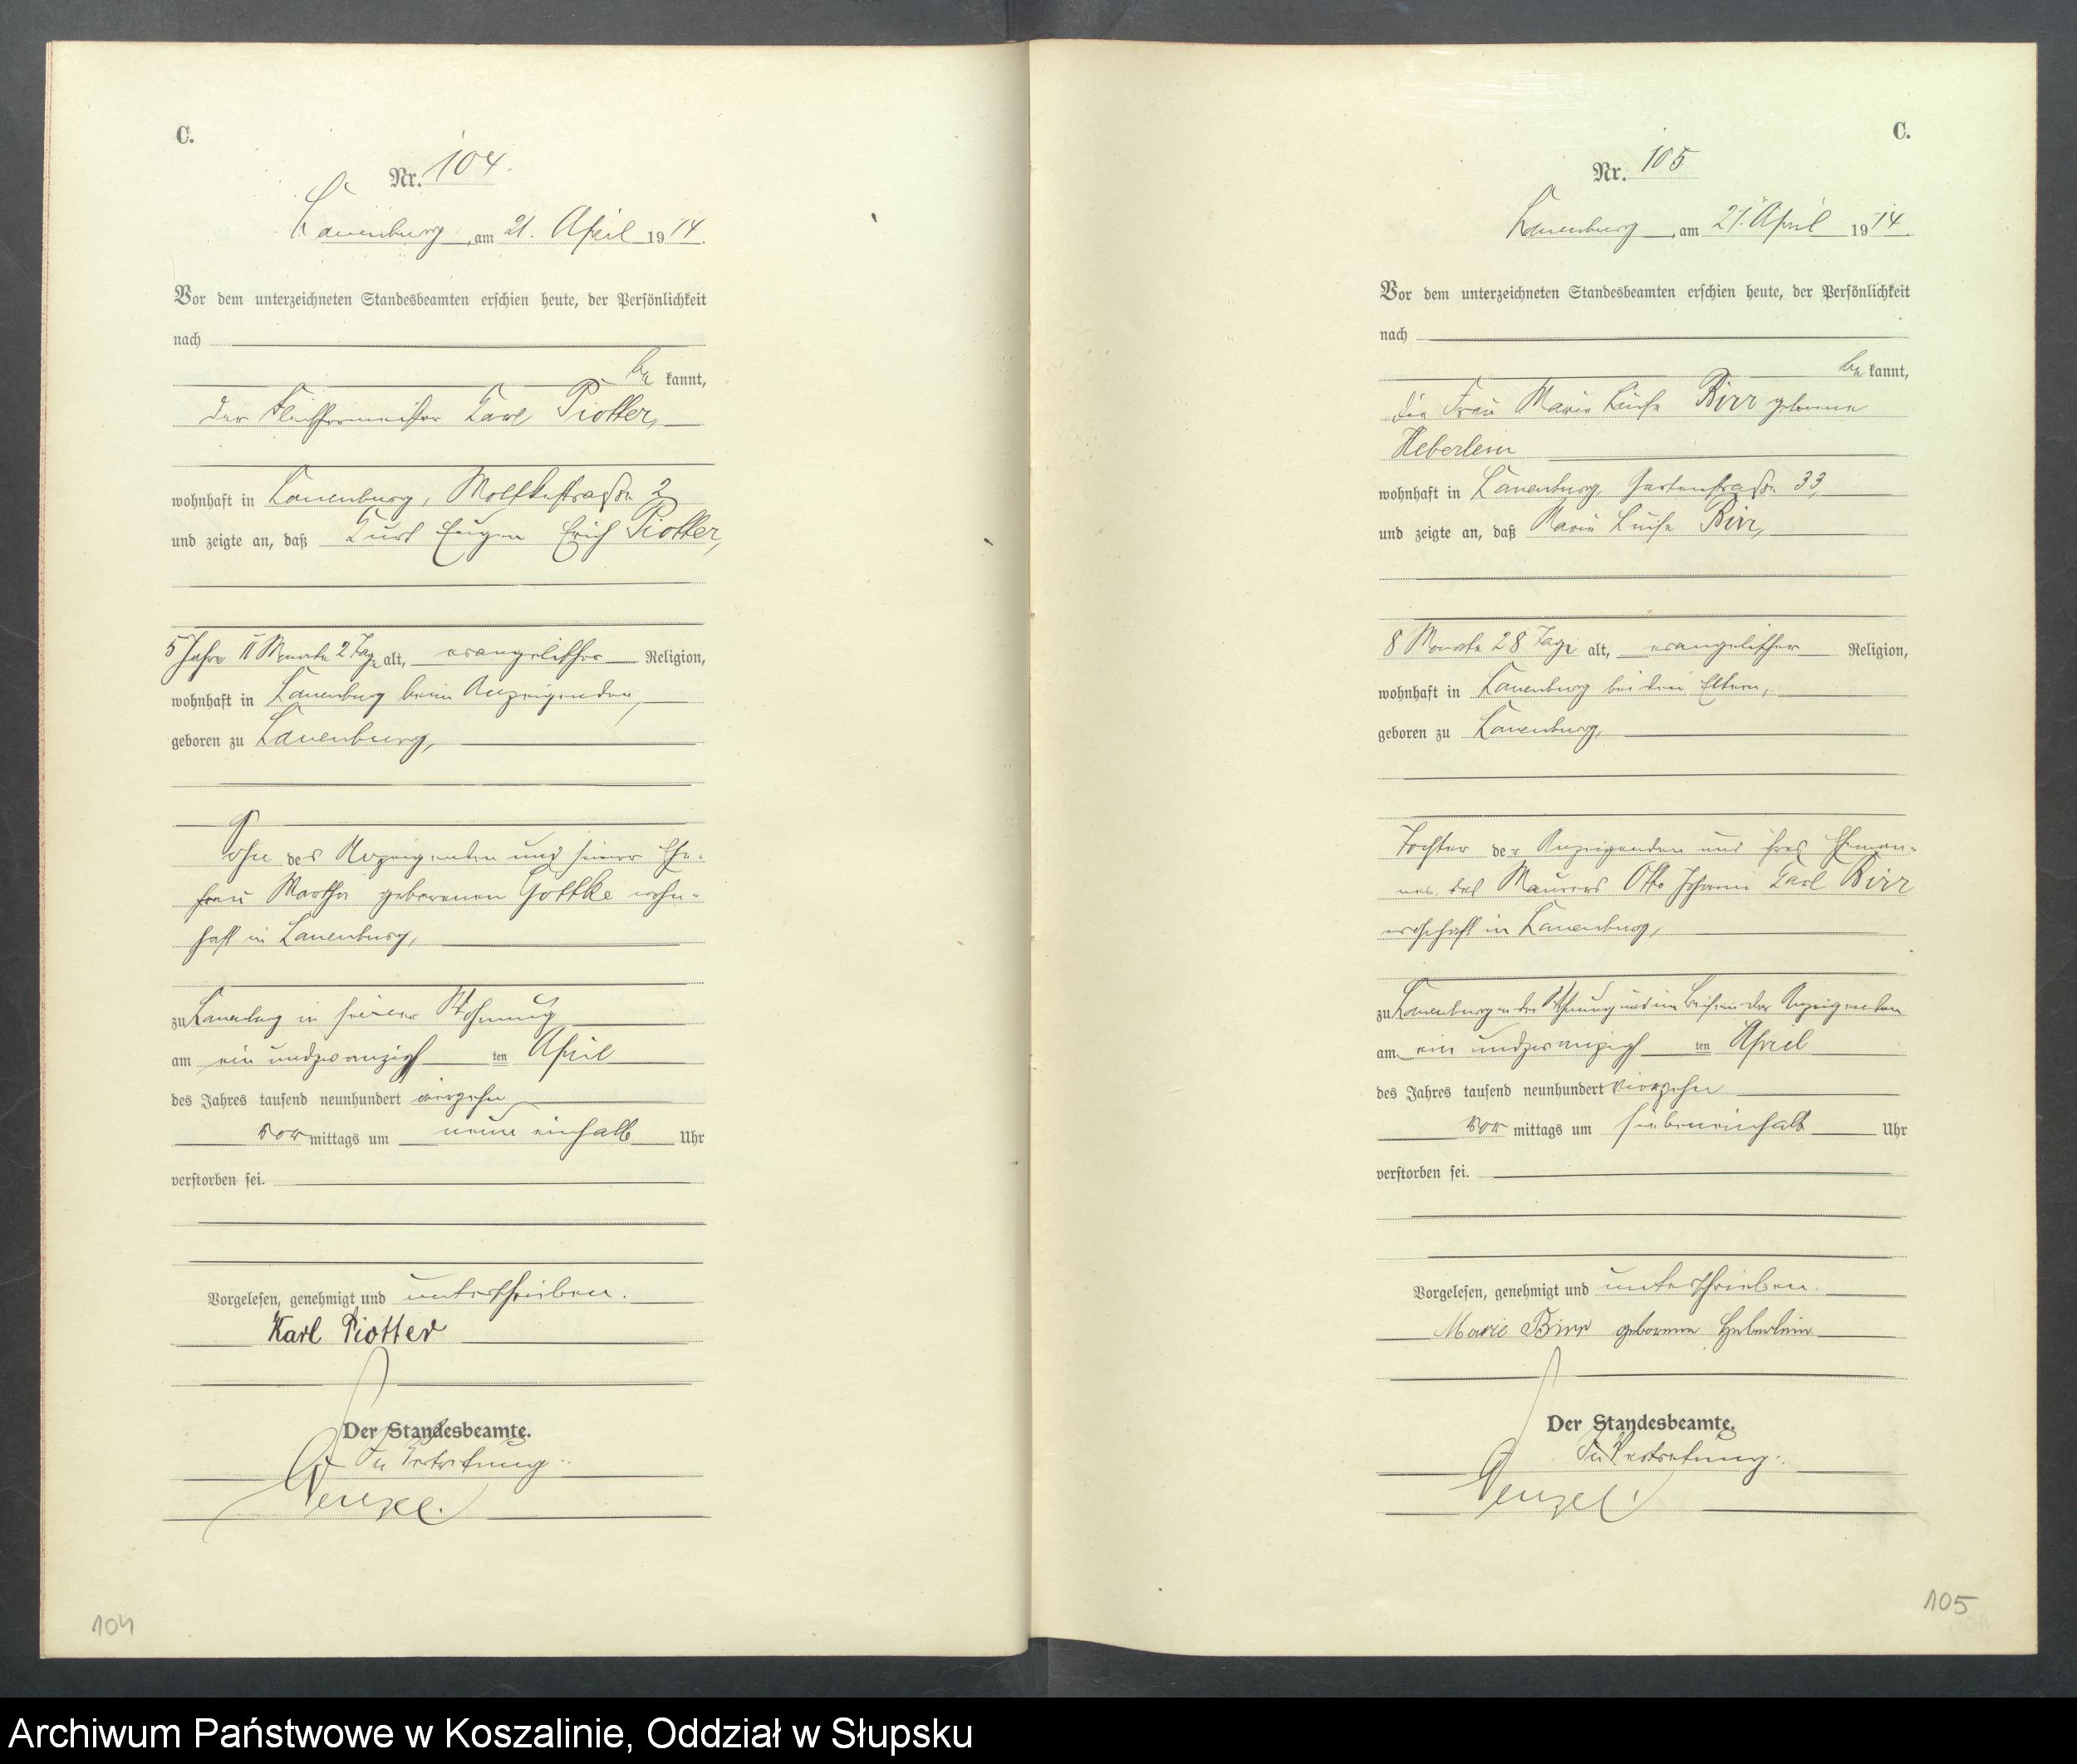 C.
Nr. 104.
Lauenburg, am 21. April 1914.
Vor dem unterzeichneten Standesbeamten erschien heute, der Persönlichkeit
nach
be kannt,
der Fleischermeister Karl Piotter,
wohnhaft in Lauenburg, Moltkestraße 2
und zeigte an, daß Kurt Eugen Erich Piotter,
5 Jahre 11 Monate 2 Tage alt, evangelischer Religion,
wohnhaft in Lauenburg beim Anzeigenden,
geboren zu Lauenburg,
Sohn des Anzeigenden und seiner Ehe-
frau Martha geborenen Gottke wohn-
haft in Lauenburg,
zu Lauenburg in seiner Wohnung
am ein undzwanzigsten April
des Jahres tausend neunhundert vierzehn
vor mittags um neun einhalb Uhr
verstorben sei.
Vorgelesen, genehmigt und unterschrieben.
Karl Piotter
Der Standesbeamte.
In Vertretung.
Wenzel.
104
C.
Nr. 105
Lauenburg, am 21. April 1914.
Vor dem unterzeichneten Standesbeamten erschien heute, der Persönlichkeit
nach
be kannt,
die Frau Marie Luise Birr geborene
Heberlein
wohnhaft in Lauenburg, Gartenstraße 33,
und zeigte an, daß Marie Luise Birr,
8 Monate 28 Tage alt, evangelischer Religion,
wohnhaft in Lauenburg bei den Eltern,
geboren zu Lauenburg,
Tochter der Anzeigenden und ihres Eheman-
nes des Maurers Otto Johann Karl Birr
wohnhaft in Lauenburg,
zu Lauenburg in der Wohnung und im Beisein der Anzeigenden
am ein undzwanzigsten April
des Jahres tausend neunhundert vierzehn
vor mittags um siebeneinhalb Uhr
verstorben sei.
Vorgelesen, genehmigt und unterschrieben.
Marie Birr geborene Heberlein
Der Standesbeamte.
In Vertretung.
Wenzel.
105
Archiwum Państwowe w Koszalinie, Oddział w Słupsku